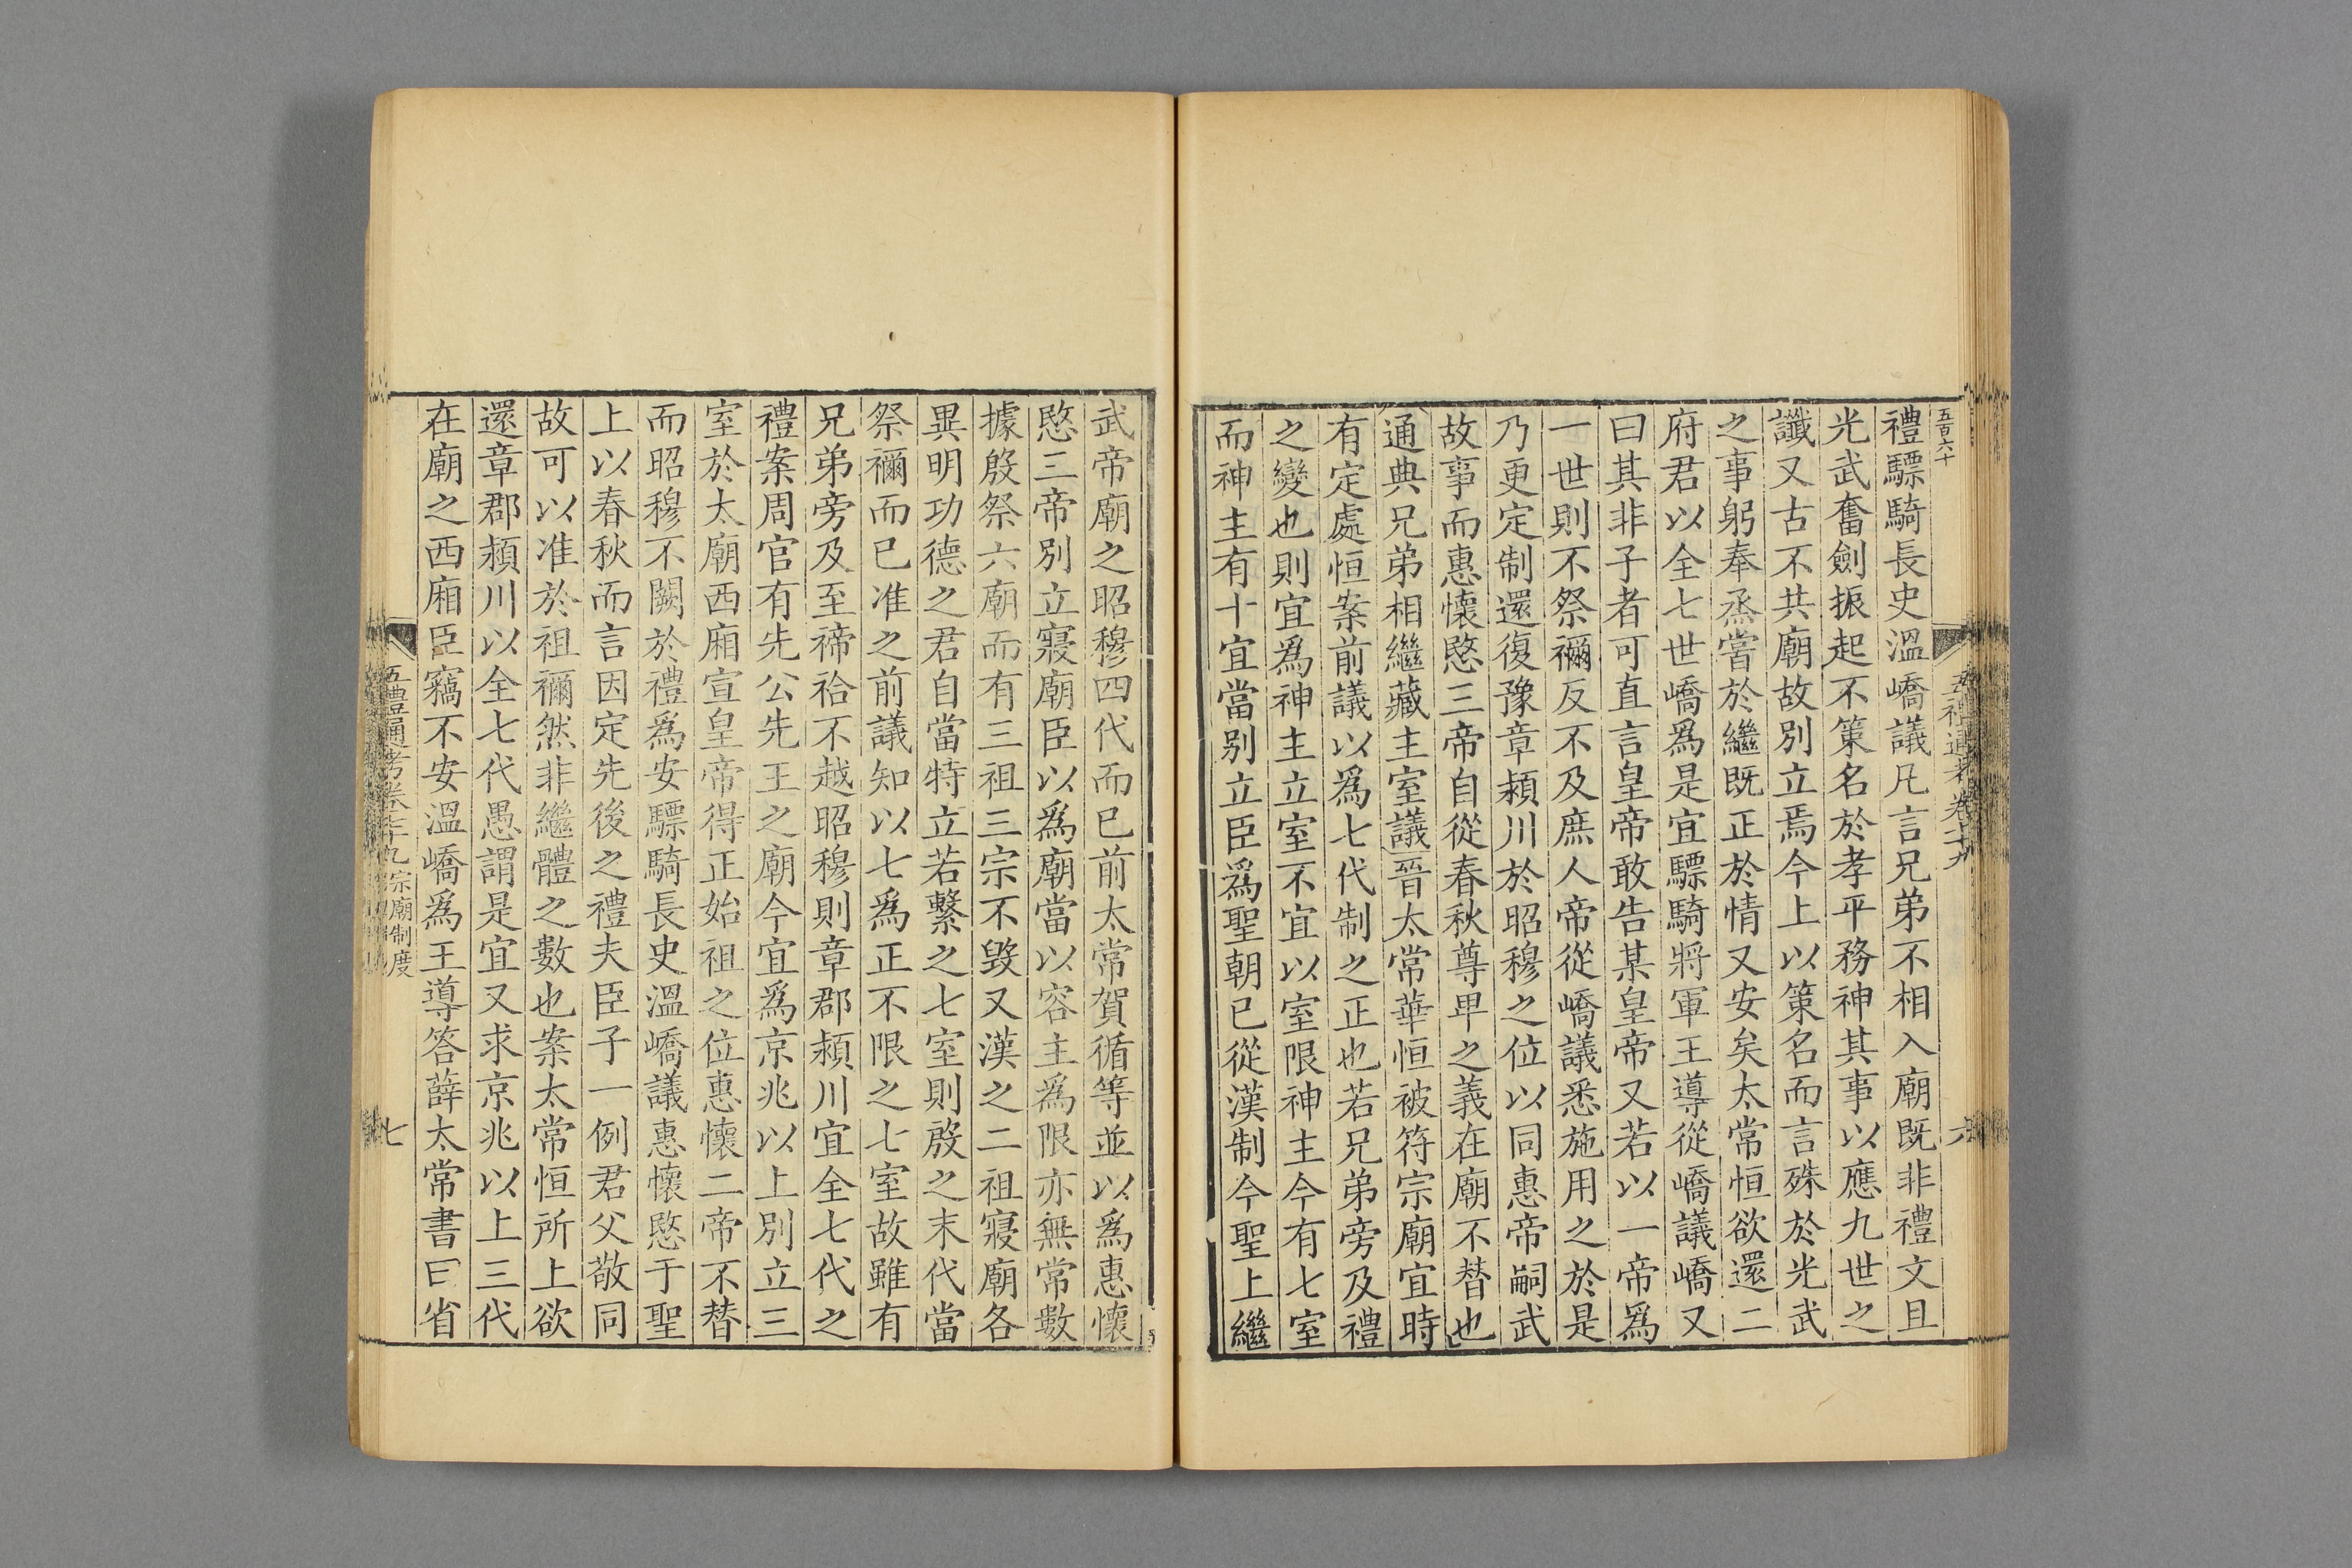 五百六十
五禮通考卷七十九
六
禮驃騎長史溫嶠議凡言兄弟不相入廟既非禮文且
光武奮劍振起不策名於孝平務神其事以應九世之
讖又古不共廟故別立焉今上以策名而言殊於光武
之事躬奉烝嘗於繼既正於情又安矣太常恒欲還二
府君以全七世嶠爲是宜驃騎將軍王導從嶠議嶠又
曰其非子者可直言皇帝敢告某皇帝又若以一帝爲
一世則不祭禰反不及庶人帝從嶠議悉施用之於是
乃更定制還復豫章潁川於昭穆之位以同惠帝嗣武
故事而惠懷愍三帝自從春秋尊卑之義在廟不替也
通典兄弟相繼藏主室議晉太常華恒被符宗廟宜時
有定處恒案前議以爲七代制之正也若兄弟旁及禮
之變也則宜爲神主立室不宜以室限神主今有七室
而神主有十宜當別立臣爲聖朝已從漢制今聖上繼
武帝廟之昭穆四代而已前太常賀循等並以爲惠懷
愍三帝別立寢廟臣以爲廟當以容主爲限亦無常數
據殷祭六廟而有三祖三宗不毀又漢之二祖寢廟各
異明功德之君自當特立若繫之七室則殷之末代當
祭禰而已准之前議知以七爲正不限之七室故雖有
兄弟旁及至禘祫不越昭穆則章郡潁川宜全七代之
禮案周官有先公先王之廟今宜爲京兆以上別立三
室於太廟西廂宣皇帝得正始祖之位惠懷二帝不替
而昭穆不闕於禮爲安驃騎長史溫嶠議惠懷愍于聖
上以春秋而言因定先後之禮夫臣子一例君父敬同
故可以准於祖禰然非繼體之數也案太常恒所上欲
還章郡潁川以全七代愚謂是宜又求京兆以上三代
在廟之西廂臣竊不安溫嶠爲王導答薛太常書曰省
五禮通考卷七十九宗廟制度
七